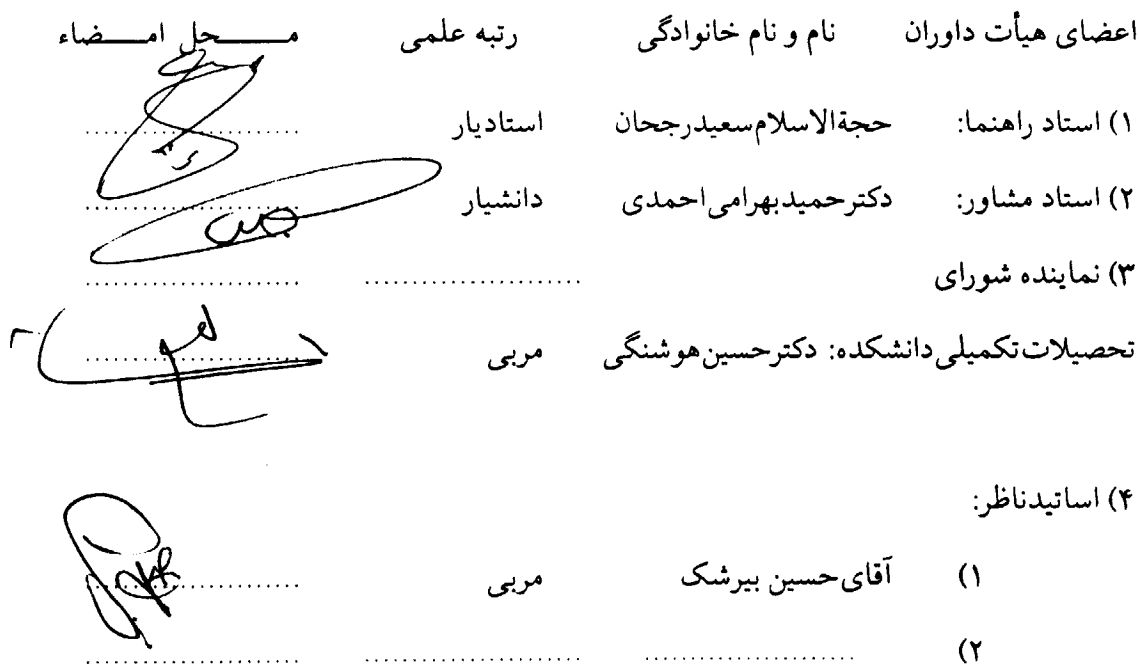 اعضای هیأت داوران نام و نام خانوادگی رتبه علمی مـــــحل امـــــضاء
۱) استاد راهنما: حجةالاسلام‌سعیدرجحان استادیار ....................
۲) استاد مشاور: دکترحمیدبهرامی‌احمدی دانشیار ....................
۳) نماینده شورای .................... ....................
تحصیلات‌تکمیلی‌دانشکده: دکترحسین‌هوشنگی مربی ....................
۴) اساتیدناظر:
۱) آقای‌حسین بیرشک مربی ....................
۲) .................... .................... ....................